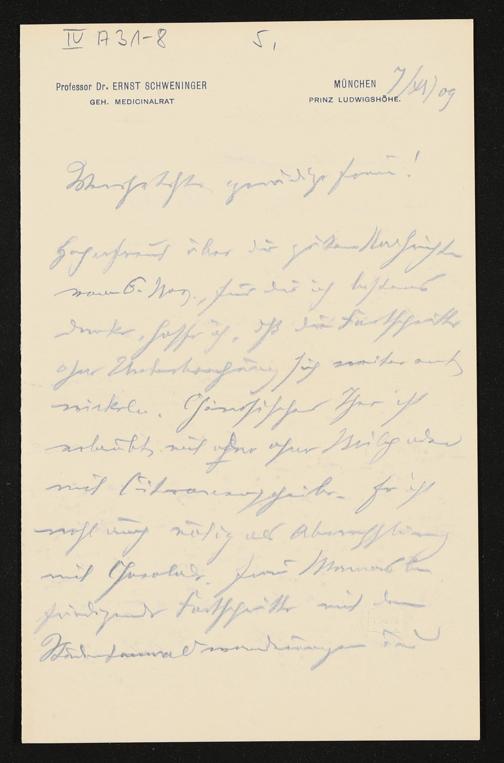 IV A31-8 5,
Professor Dr. ERNST SCHWENINGER
GEH. MEDICINALRAT
MÜNCHEN
PRINZ LUDWIGSHÖHE.
7/XI 09
gnädige Frau!
Hocherfreut über die guten Nachrichten
vom 6. Nov., für die ich bestens
danke, hoffe ich, daß die Fortschritte
ohne Unterbrechung sich weiter ent
wickeln. Chinesischer Thee ist
erlaubt mit oder ohne Milch oder
mit Citronenscheibe. Er ist
wohl auch nötig als Abwechslung
mit Chocolade. Frau Mamas be
friedigende Fortschritte mit den